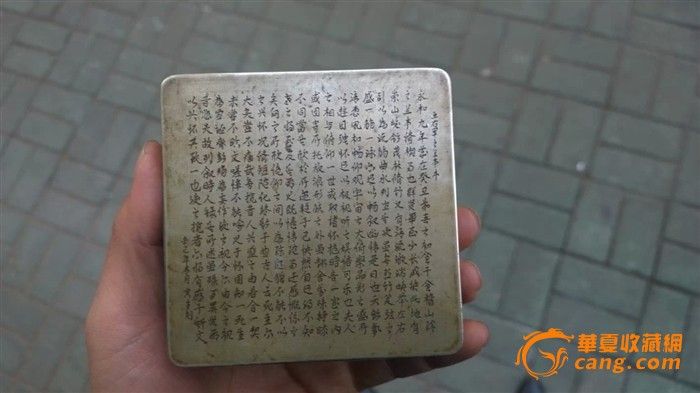 永和九年歲在癸丑暮春之初會于會稽山陰
之蘭亭脩禊事也群賢畢至少長咸集此地有
崇山峻領茂林脩竹又有清流激湍映帶左右
引以為流觴曲水列坐其次雖無絲竹管弦之
盛一觴一詠亦足以暢敘幽情是日也天朗氣
清惠風和暢仰觀宇宙之大俯察品類之盛所
以遊目騁懷足以極視聽之娛信可樂也夫人
之相與俯仰一世或取諸懷抱晤言一室之內
或因寄所託放浪形骸之外雖趣舍萬殊靜躁
不同當其欣於所遇暫得於己快然自足不知
老之將至及其所之既惓情隨事遷感慨係之
矣向之所欣俛仰之間以為陳迹猶不能不以
之興懷況脩短隨化終期於盡古人云死生亦
大矣豈不痛哉每攬昔人興感之由若合一契
未嘗不臨文嗟悼不能喻之於懷固知一死生
為虛誕齊彭殤為妄作後之視今亦由今之視
昔悲夫故列敘時人錄其所述雖世殊事異所
以興懷其致一也後之攬者亦將有感於斯文
華夏收藏網
cang.com